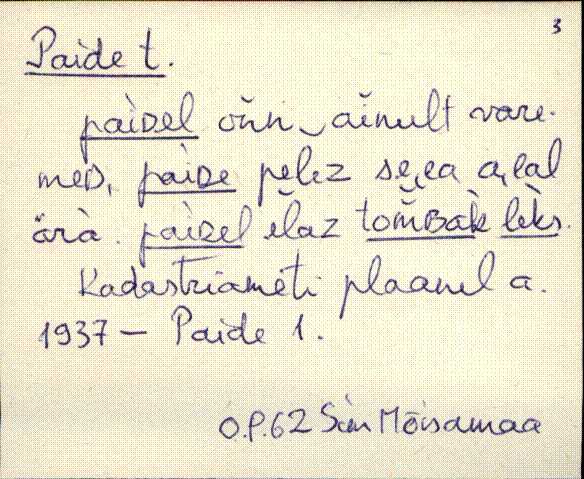 3
Paide t.
pàiDel oňn ainult vare-
meD, pàiDe peĺez sęea a̬i̬al
ärà. pàiDel eĺaz toḿBàk lèks.
Kadastriameti plaanil a.
1937 – Paide 1.
O.P.62 San Mõisamaa